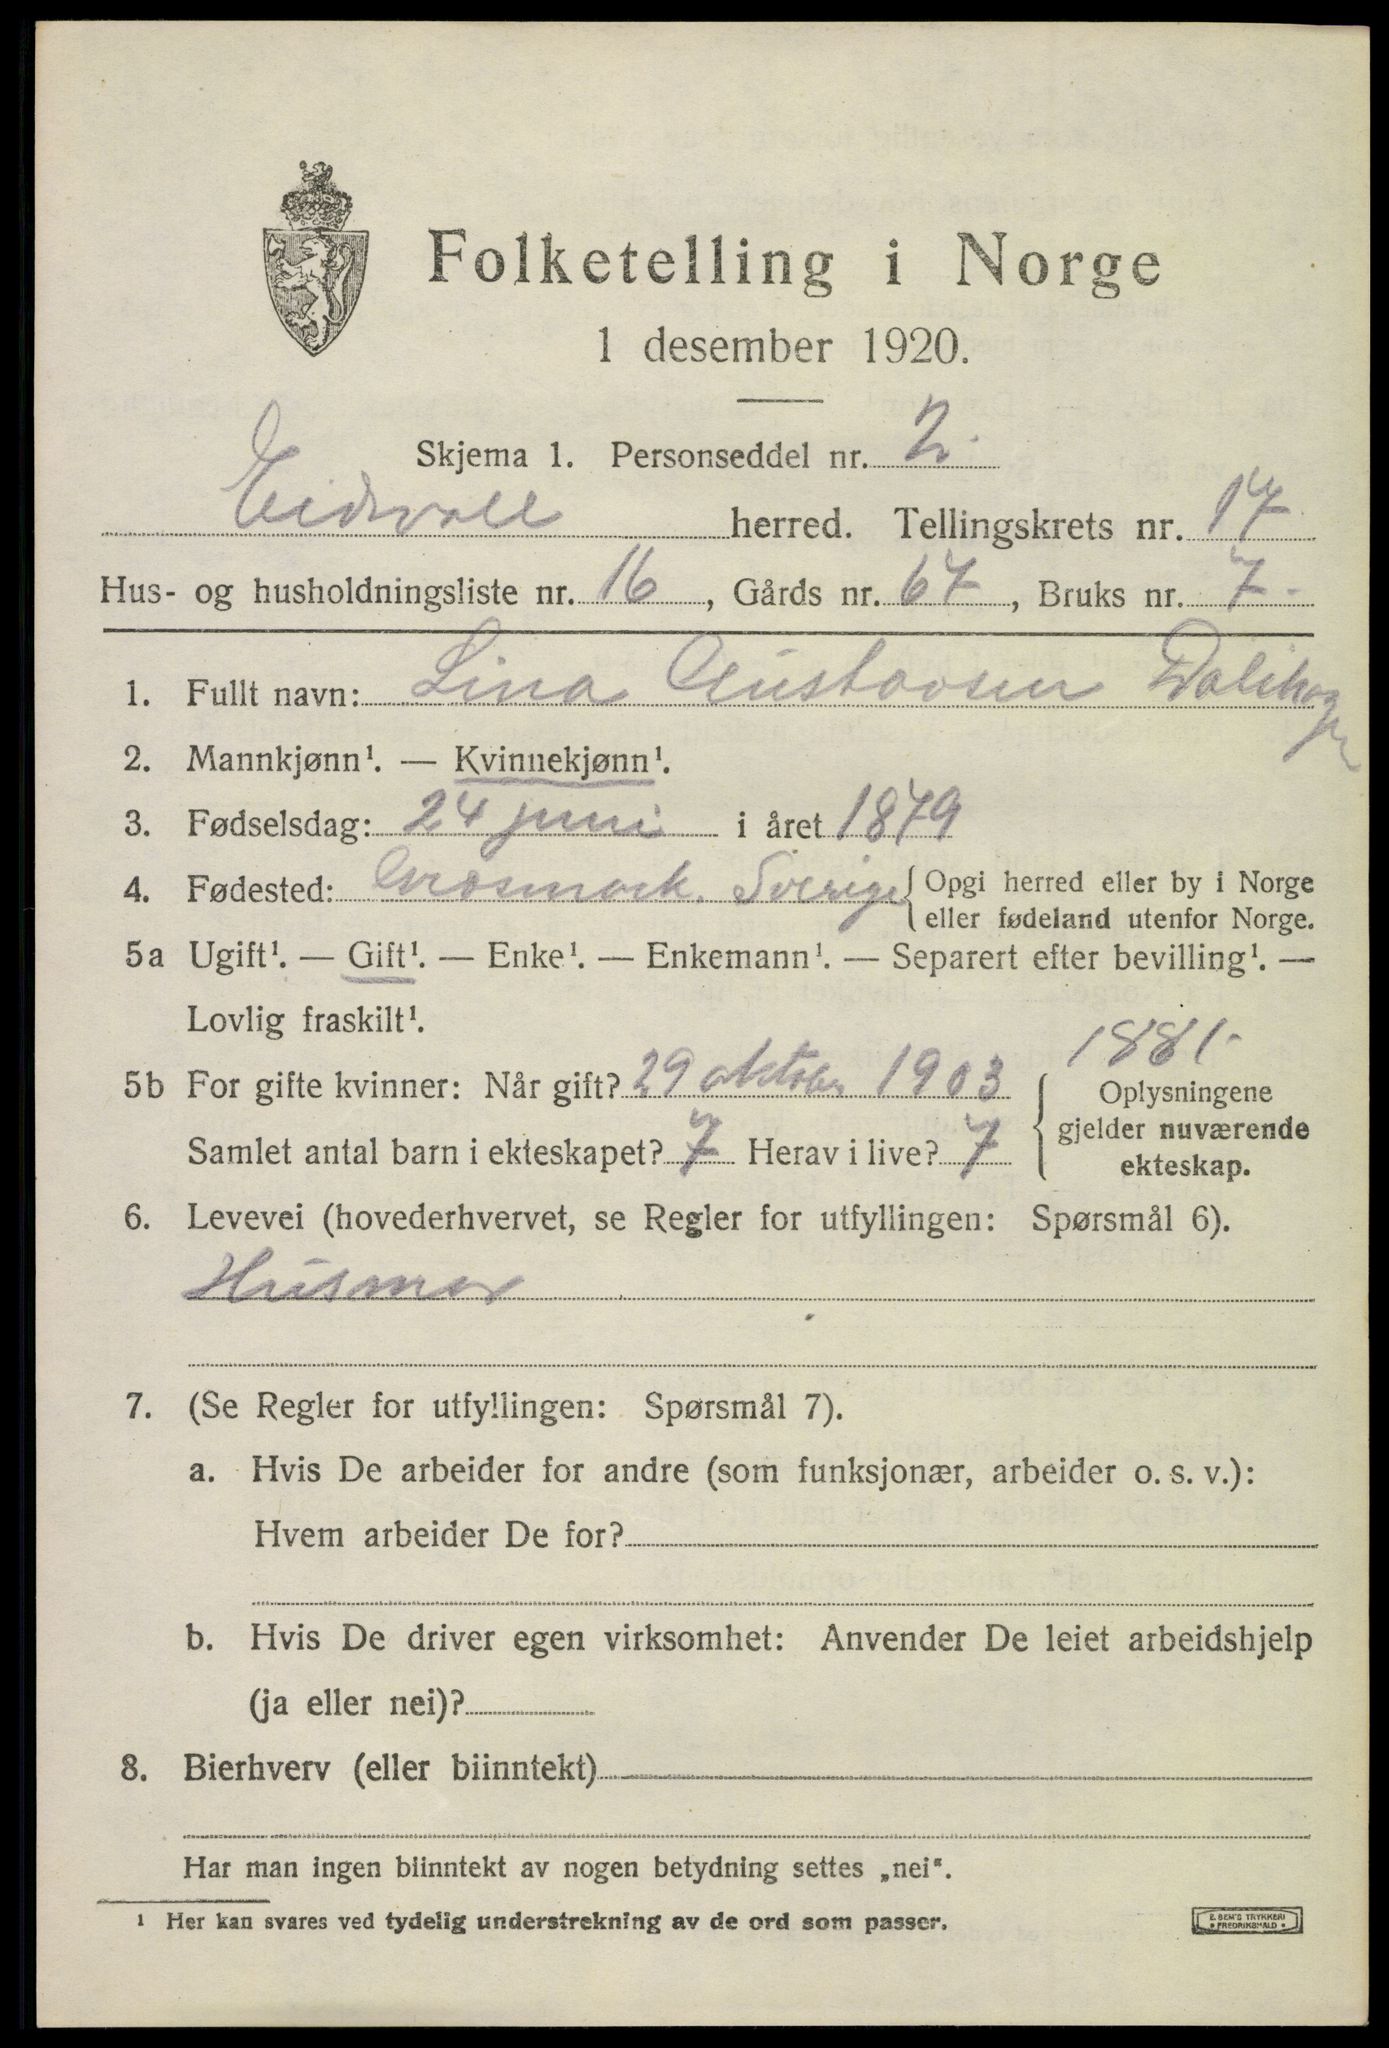 Folketelling i Norge
1 desember 1920.
Skjema 1. Personseddel nr. 2.
Eidsvoll herred. Tellingskrets nr. 17.
Hus- og husholdningsliste nr. 16, Gårds nr. 67, Bruks nr. 7.
1. Fullt navn: Lina Gustavsen
2. Mannkjønn¹. — Kvinnekjønn¹.
3. Fødselsdag: 24 juni i året 1879
4. Fødested: Sverige { Opgi herred eller by i Norge
eller fødeland utenfor Norge.
5a Ugift¹. — Gift¹. — Enke¹. — Enkemann¹. — Separert efter bevilling¹. —
Lovlig fraskilt¹.
1881-
5b For gifte kvinner: Når gift? 29 oktober 1903
Samlet antal barn i ekteskapet? 7 Herav i live? 7
Oplysningene
gjelder nuværende
ekteskap.
6. Levevei (hovederhvervet, se Regler for utfyllingen: Spørsmål 6).
Husmor
7. (Se Regler for utfyllingen: Spørsmål 7).
a. Hvis De arbeider for andre (som funksjonær, arbeider o. s. v.):
Hvem arbeider De for?
b. Hvis De driver egen virksomhet: Anvender De leiet arbeidshjelp
(ja eller nei)?
8. Bierhverv (eller biinntekt)
Har man ingen biinntekt av nogen betydning settes „nei“.
¹ Her kan svares ved tydelig understrekning av de ord som passer.
E. SEM'S TRYKKERI
• FREDRIKSHALD •